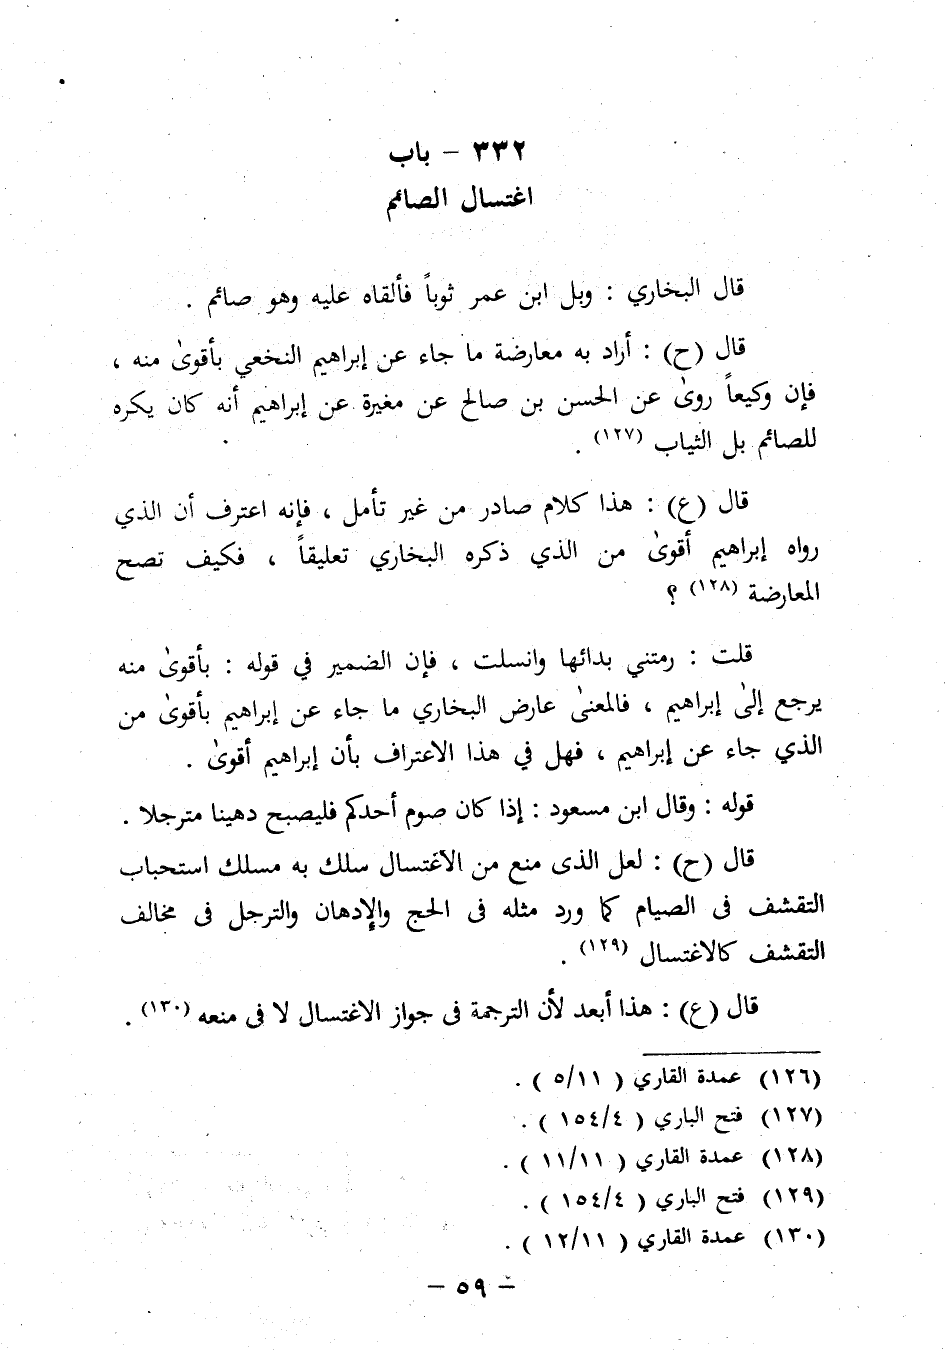 ٣٣٢ – باب
اغتسال الصائم
قال البخاري : وبل ابن عمر ثوباً فألقاه عليه وهو صائم .
قال (ح) : أراد به معارضة ما جاء عن إبراهيم النخعي بأقوىٰ منه ،
فإن وكيعاً روىٰ عن الحسن بن صالح عن مغيرة عن إبراهيم أنه كان يكره
للصائم بل الثياب (١٢٧) .
قال (ع) : هذا كلام صادر من غير تأمل ، فإنه اعترف أن الذي
رواه إبراهيم أقوىٰ من الذي ذكره البخاري تعليقاً ، فكيف تصح
المعارضة (١٢٨) ؟
قلت : رمتني بدائها وانسلت ، فإن الضمير في قوله : بأقوىٰ منه
يرجع إلىٰ إبراهيم ، فالمعنىٰ عارض البخاري ما جاء عن إبراهيم بأقوىٰ من
الذي جاء عن إبراهيم ، فهل في هذا الاعتراف بأن إبراهيم أقوىٰ .
قوله : وقال ابن مسعود : إذا كان صوم أحدكم فليصبح دهينا مترجلا .
قال (ح) : لعل الذى منع من الاغتسال سلك به مسلك استحباب
التقشف فى الصيام كما ورد مثله فى الحج والإدهان والترجل فى مخالف
التقشف كالاغتسال (١٢٩) .
قال (ع) : هذا أبعد لأن الترجمة فى جواز الاغتسال لا فى منعه (١٣٠) .
(١٢٦) عمدة القاري ( ٥/١١ ) .
(١٢٧) فتح الباري ( ١٥٤/٤ ) .
(١٢٨) عمدة القاري ( ١١/١١ ) .
(١٢٩) فتح الباري ( ١٥٤/٤ ) .
(١٣٠) عمدة القاري ( ١٢/١١ ) .
– ٥٩ –